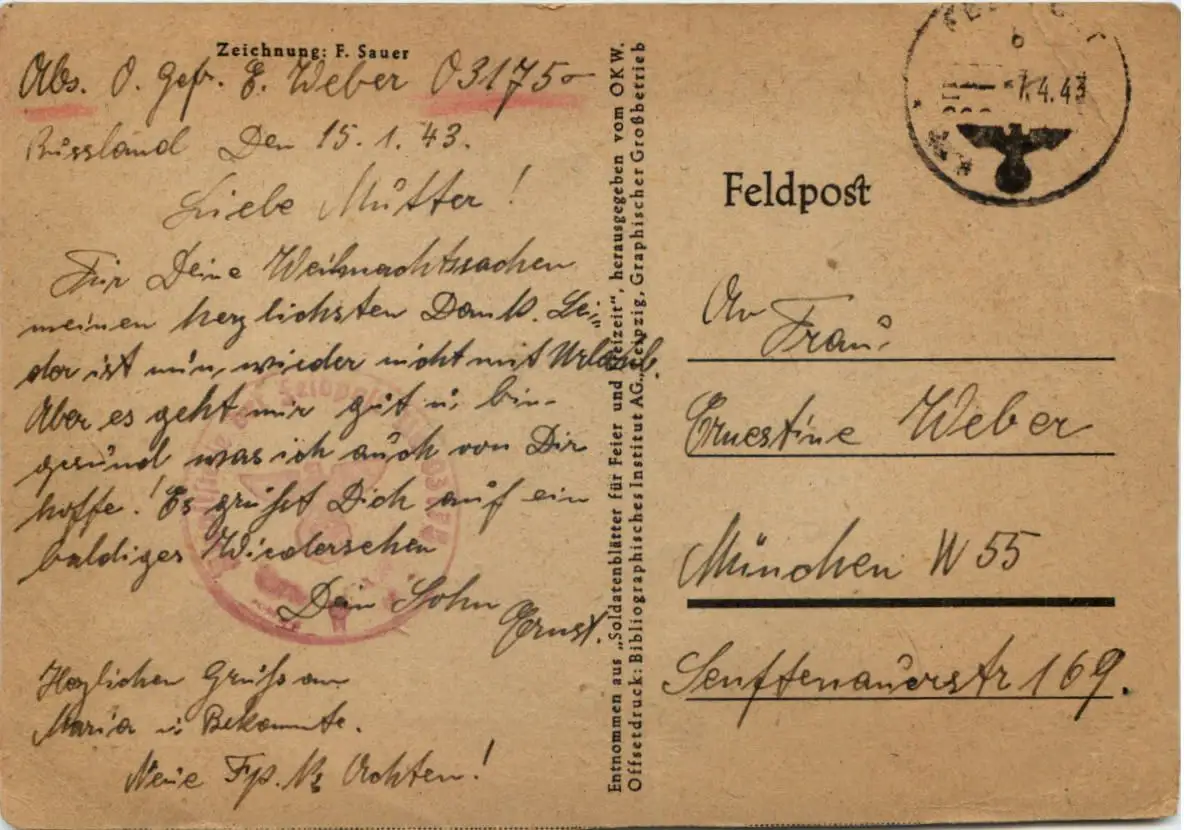 Zeichnung: F. Sauer
Abs. O. Gefr. E. Weber 03175
Russland Den 15.1.43.
Liebe Mutter!
Für Deine Weihnachtssachen
meinen herzlichsten Dank. Lei-
der ist nun wieder nicht mit Urlaub.
Aber es geht mir gut u. bin
gesund was ich auch von Dir
hoffe! Es grüßt Dich auf ein
baldiges Wiedersehen
Dein Sohn
Ernst.
Herzlichen Gruß an
Maria u. Bekannte.
Neue Fp. Nr Achten!
Entnommen aus „Soldatenblätter für Feier und Freizeit", herausgegeben vom OKW.
Offsetdruck: Bibliographisches Institut AG., Leipzig, Graphischer Großbetrieb
b
.4.43
Feldpost
An
Frau
Ernestine Weber
München W 55
Senftenauerstr 169.